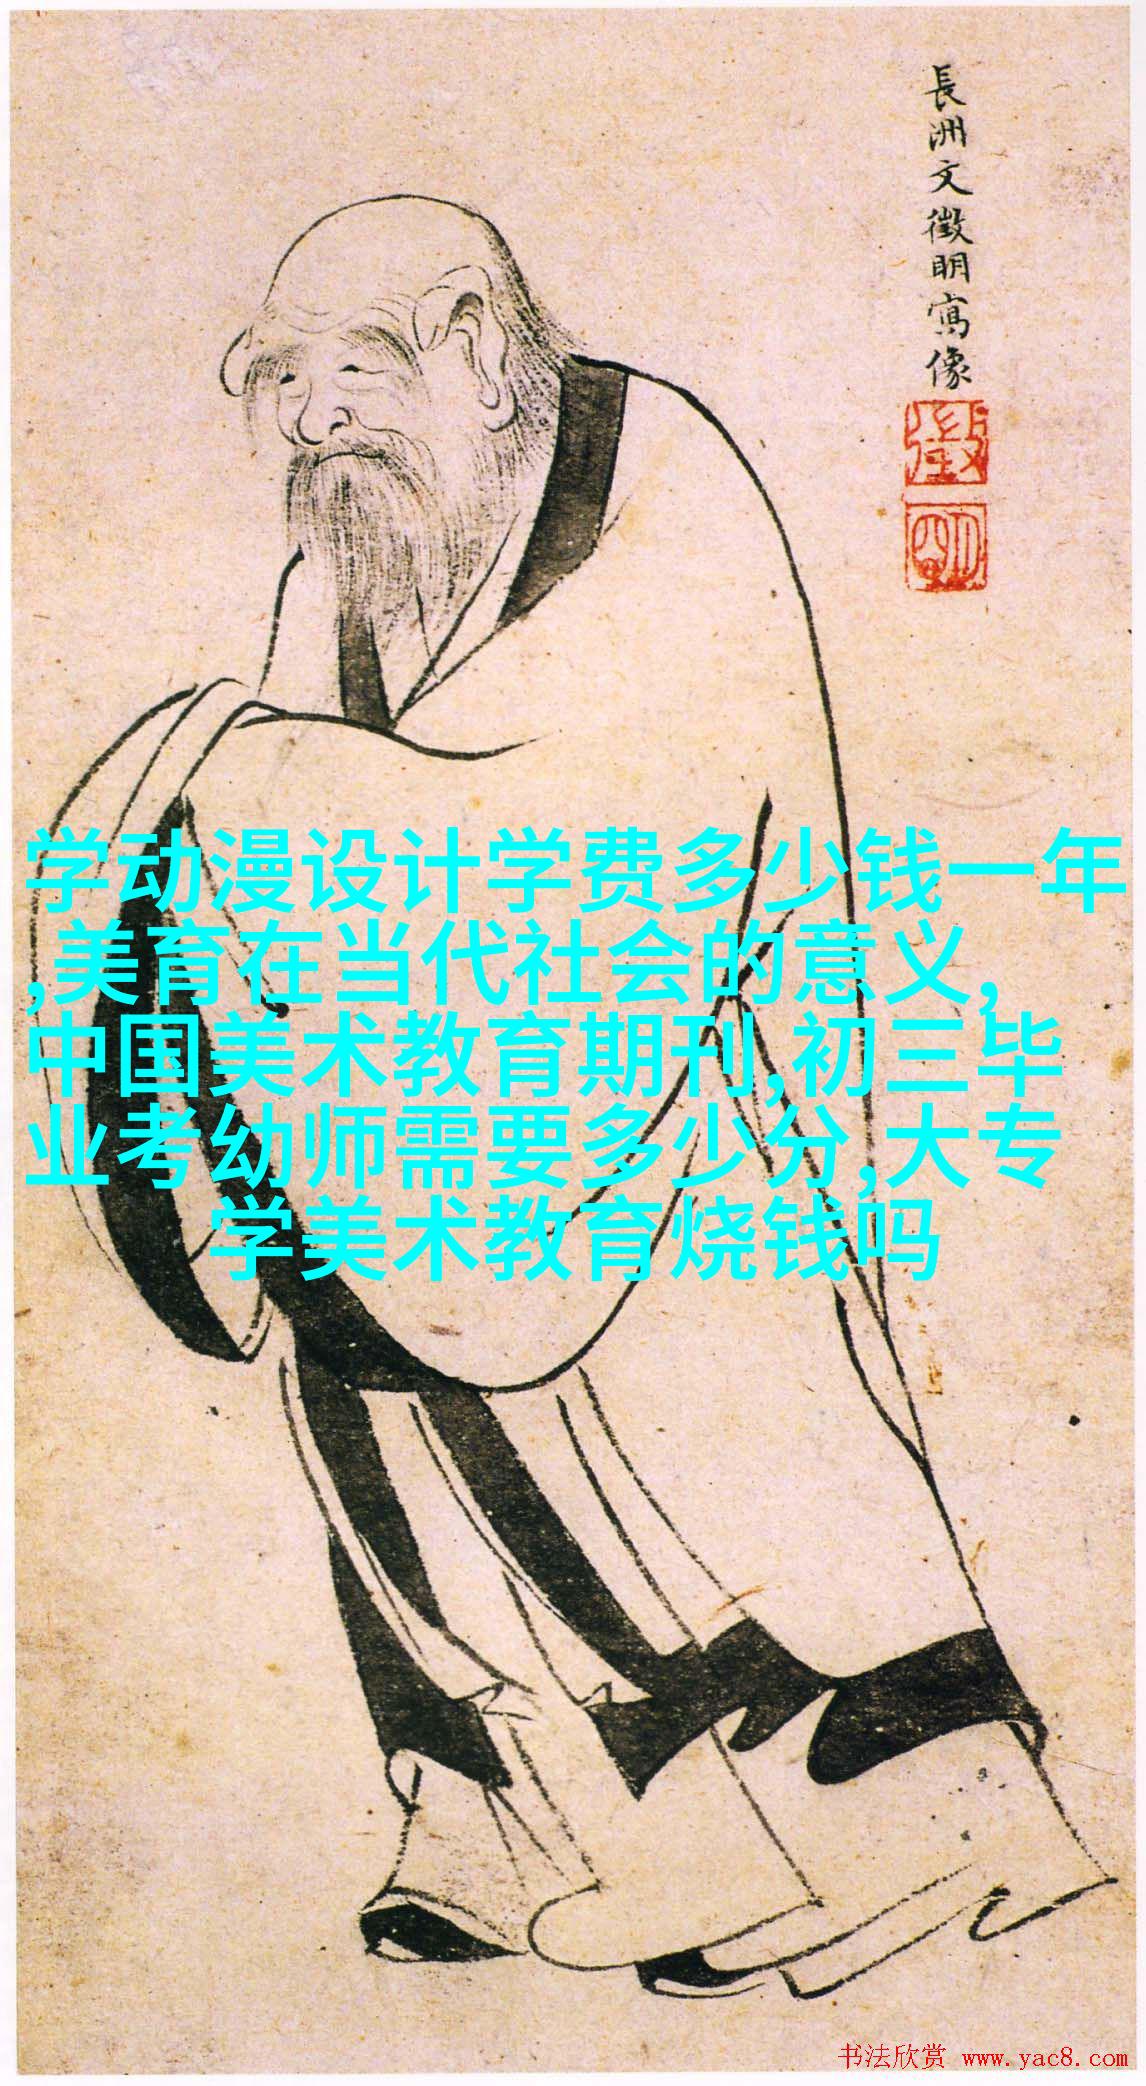 長洲文徵明寫像
徵
明
学动漫设计学费多少钱一年
,美育在当代社会的意义,
中国美术教育期刊,初三毕
业考幼师需要多少分,大专
学美术教育烧钱吗
书法欣赏 www.yac8.com